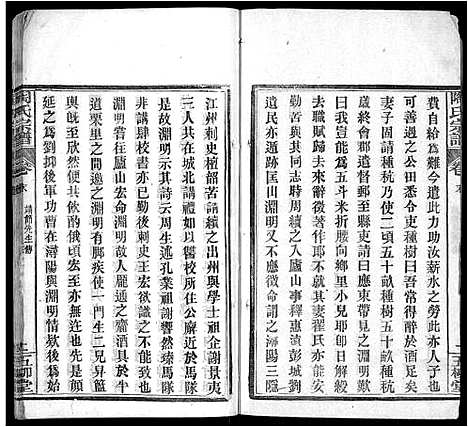 費自給為難今遣此力助汝薪水之勞此亦人子也
可善遇之公田悉令吏種秫曰吾常得醉於酒足矣
妻子固請種秔乃使二頃五十畝種秫五十畝種秔
歲終會郡遣督郵至縣吏請曰應束帶見之淵明
歎曰我豈能為五斗米折腰向鄉里小兒耶即日解印
去職賦歸去來徵著作郎不就其妻翟氏亦能安
勤苦與其同志
周續之入廬山事惠遠彭城劉
遺民亦遁跡匡山淵明又不應徵命謂之潯陽三隱
江州刺史檀韶苦請續之出州與學士祖企謝景夷
三人共在城北講禮加以讐校所住公廨近於馬隊
故淵明示其詩云周生述孔業祖謝響然臻馬隊
非講肆校書亦已勤後刺史王宏欲識之不能致也
淵明嘗往廬山宏命淵明故人龐通之齎酒具於半
道栗里之間邀之淵明有脚疾使一門生二兒舁籃
輿既至欣然便共飲酌俄頃宏至亦無迕也先是顏
延之為劉抑後軍功曹在潯陽與淵明情欵後為始
陶氏宗譜
卷末
靖節先生傳
五柳堂